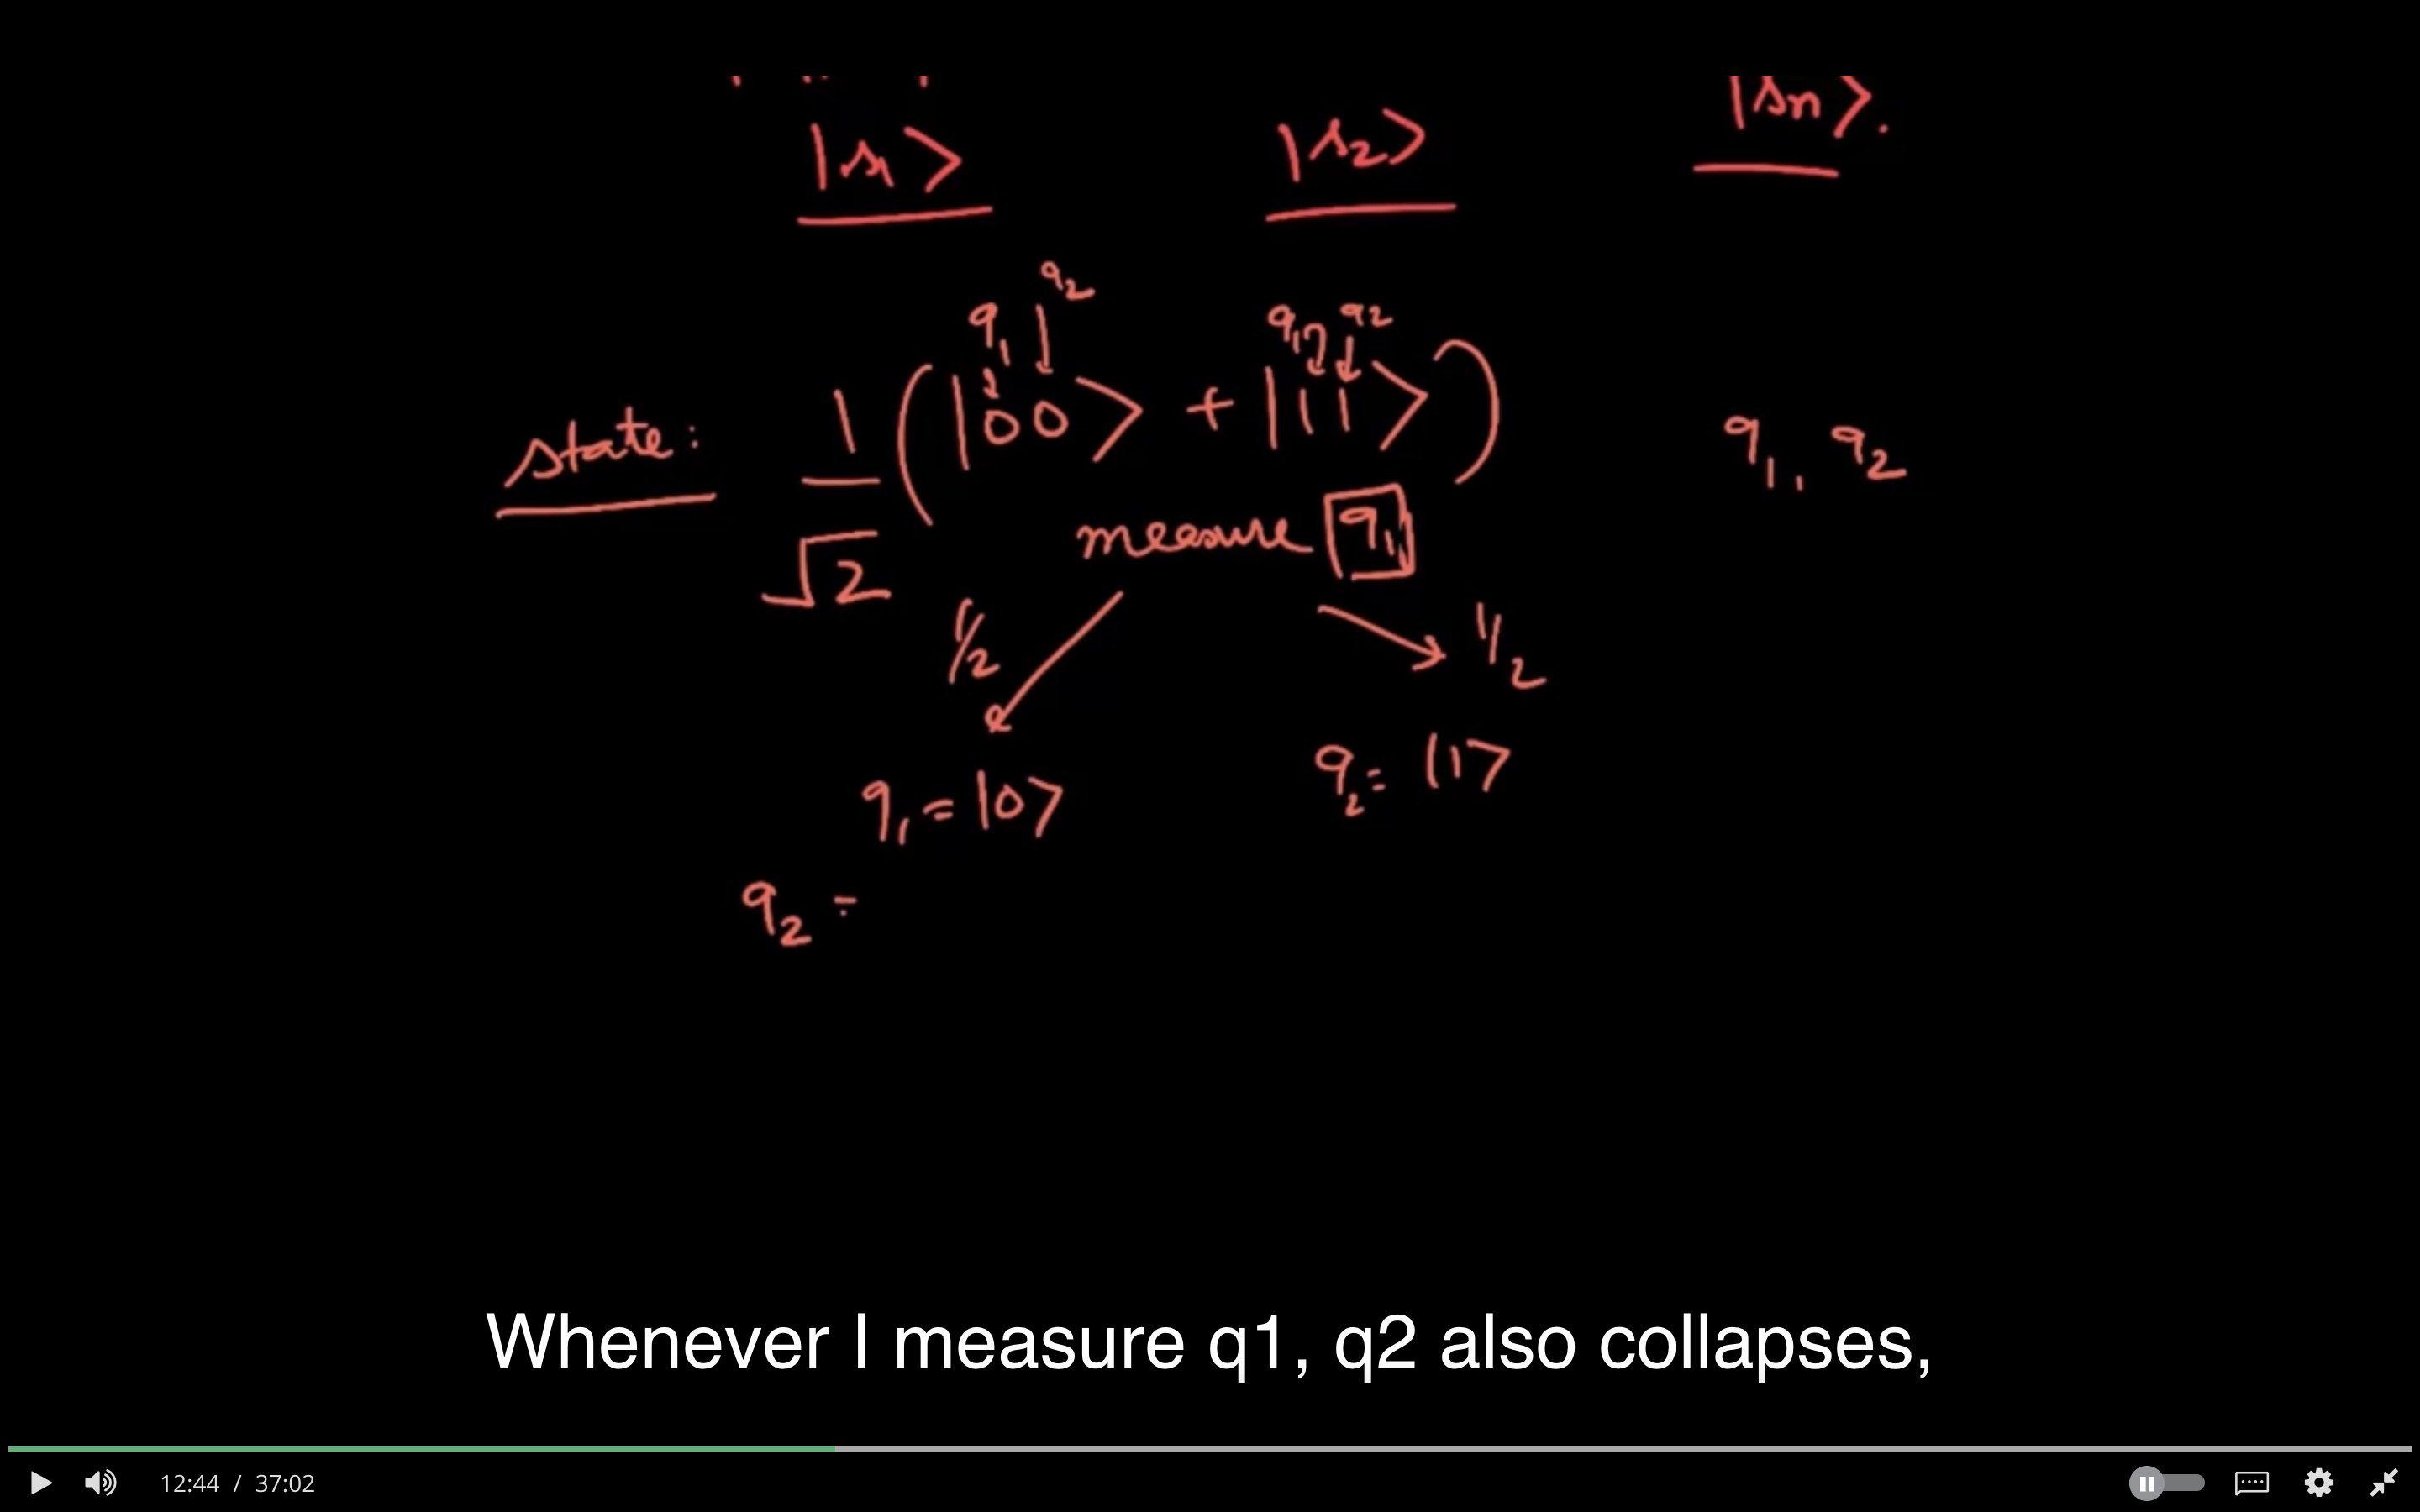 |s1> |s2> |sn>.
q1 q2 q1 q2
state: 1/√2 (|00> + |11>) q1, q2
measure q1
1/2 1/2
q1 = |0> q2 = |1>
q2 =
Whenever I measure q1, q2 also collapses,
12:44 / 37:02